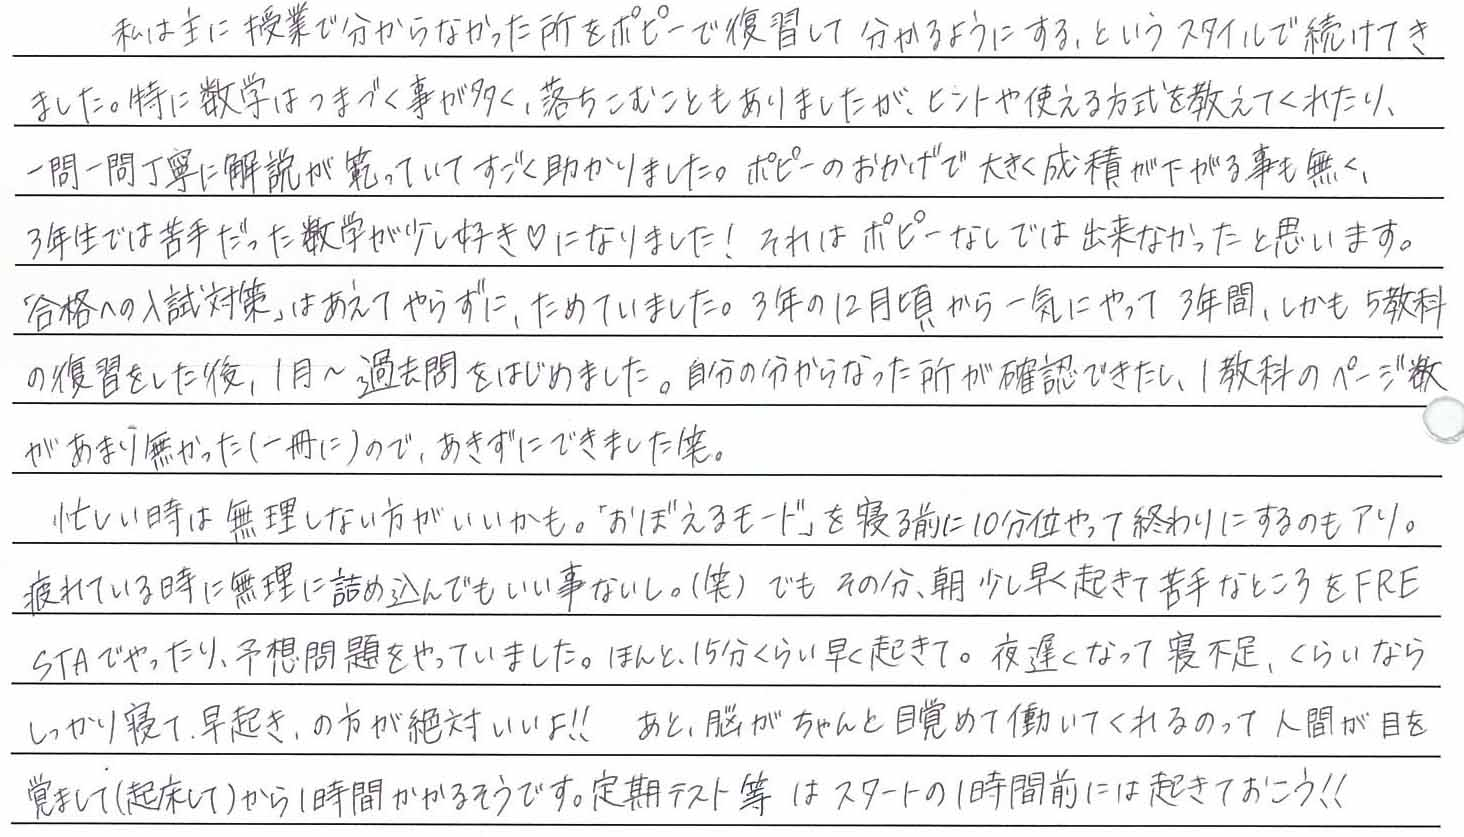 私は主に授業で分からなかった所をポピーで復習して分かるようにする、というスタイルで続けてき
ました。特に数学はつまづく事が多く、落ちこむこともありましたが、ヒントや使える方式を教えてくれたり、
一問一問丁寧に解説が載っていてすごく助かりました。ポピーのおかげで大きく成積が下がる事も無く、
3年生では苦手だった数学が少し好き♡になりました！それはポピーなしでは出来なかったと思います。
「合格への入試対策」はあえてやらずに、ためていました。3年の12月頃から一気にやって3年間、しかも5教科
の復習をした後、1月～過去問をはじめました。自分の分からなった所が確認できたし、1教科のページ数
があまり無かった(一冊に)ので、あきずにできました笑。
忙しい時は無理しない方がいいかも。「おぼえるモード」を寝る前に10分位やって終わりにするのもアリ。
疲れている時に無理に詰め込んでもいい事ないし。(笑) でもその分、朝少し早く起きて苦手なところをFRE
STAでやったり、予想問題をやっていました。ほんと、15分くらい早く起きて。夜遅くなって寝不足、くらいなら
しっかり寝て、早起き、の方が絶対いいよ!! あと、脳がちゃんと目覚めて働いてくれるのって人間が目を
覚まして(起床して)から1時間かかるそうです。定期テスト等はスタートの1時間前には起きておこう!!